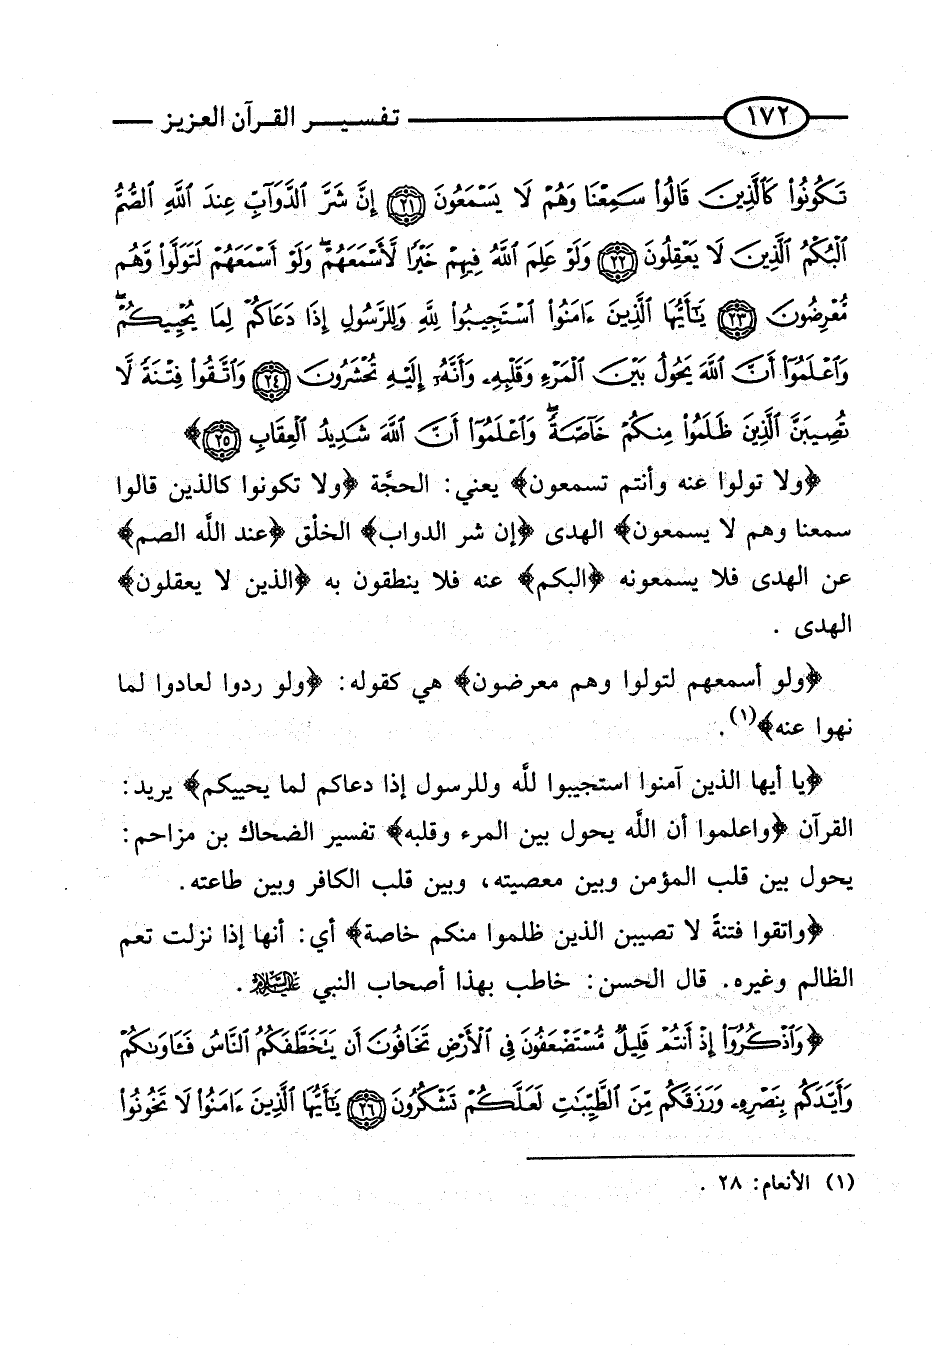 ١٧٢ تفسير القرآن العزيز
تَكُونُوا۟ كَٱلَّذِينَ قَالُوا۟ سَمِعْنَا وَهُمْ لَا يَسْمَعُونَ ٢١ إِنَّ شَرَّ ٱلدَّوَآبِّ عِندَ ٱللَّهِ ٱلصُّمُّ
ٱلْبُكْمُ ٱلَّذِينَ لَا يَعْقِلُونَ ٢٢ وَلَوْ عَلِمَ ٱللَّهُ فِيهِمْ خَيْرًا لَّأَسْمَعَهُمْ ۖ وَلَوْ أَسْمَعَهُمْ لَتَوَلَّوا۟ وَّهُم
مُّعْرِضُونَ ٢٣ يَـٰٓأَيُّهَا ٱلَّذِينَ ءَامَنُوا۟ ٱسْتَجِيبُوا۟ لِلَّهِ وَلِلرَّسُولِ إِذَا دَعَاكُمْ لِمَا يُحْيِيكُمْ ۖ
وَٱعْلَمُوٓا۟ أَنَّ ٱللَّهَ يَحُولُ بَيْنَ ٱلْمَرْءِ وَقَلْبِهِۦ وَأَنَّهُۥٓ إِلَيْهِ تُحْشَرُونَ ٢٤ وَٱتَّقُوا۟ فِتْنَةً لَّا
تُصِيبَنَّ ٱلَّذِينَ ظَلَمُوا۟ مِنكُمْ خَآصَّةً ۖ وَٱعْلَمُوٓا۟ أَنَّ ٱللَّهَ شَدِيدُ ٱلْعِقَابِ ٢٥﴾
﴿ولا تولوا عنه وأنتم تسمعون﴾ يعني: الحجَّة ﴿ولا تكونوا كالذين قالوا
سمعنا وهم لا يسمعون﴾ الهدى ﴿إن شر الدواب﴾ الخلْق ﴿عند اللَّه الصم﴾
عن الهدى فلا يسمعونه ﴿البكم﴾ عنه فلا ينطقون به ﴿الذين لا يعقلون﴾
الهدى .
﴿ولو أسمعهم لتولوا وهم معرضون﴾ هي كقوله: ﴿ولو ردوا لعادوا لما
نهوا عنه﴾(١).
﴿يا أيها الذين آمنوا استجيبوا للَّه وللرسول إذا دعاكم لما يحييكم﴾ يريد:
القرآن ﴿واعلموا أن اللَّه يحول بين المرء وقلبه﴾ تفسير الضحاك بن مزاحم:
يحول بين قلب المؤمن وبين معصيته، وبين قلب الكافر وبين طاعته.
﴿واتقوا فتنةً لا تصيبن الذين ظلموا منكم خاصة﴾ أي: أنها إذا نزلت تعم
الظالم وغيره. قال الحسن: خاطب بهذا أصحاب النبي عليه السلام .
﴿وَٱذْكُرُوٓا۟ إِذْ أَنتُمْ قَلِيلٌ مُّسْتَضْعَفُونَ فِى ٱلْأَرْضِ تَخَافُونَ أَن يَتَخَطَّفَكُمُ ٱلنَّاسُ فَـَٔاوَىٰكُمْ
وَأَيَّدَكُم بِنَصْرِهِۦ وَرَزَقَكُم مِّنَ ٱلطَّيِّبَـٰتِ لَعَلَّكُمْ تَشْكُرُونَ ٢٦ يَـٰٓأَيُّهَا ٱلَّذِينَ ءَامَنُوا۟ لَا تَخُونُوا۟
(١) الأنعام: ٢٨ .